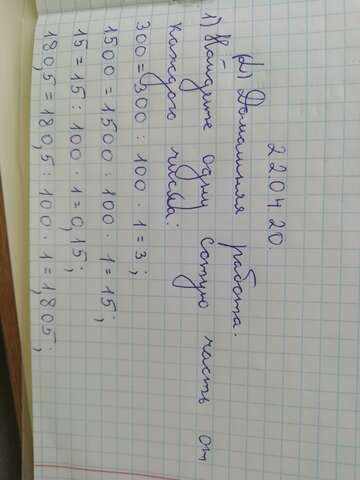 220420.
(д) Домашняя работа.
1) Найдите одну сотую часть от
каждого числа:
300 = 300 : 100 · 1 = 3;
1500 = 1500 : 100 · 1 = 15;
15 = 15 : 100 · 1 = 0,15;
180,5 = 180,5 : 100 · 1 = 1,805;